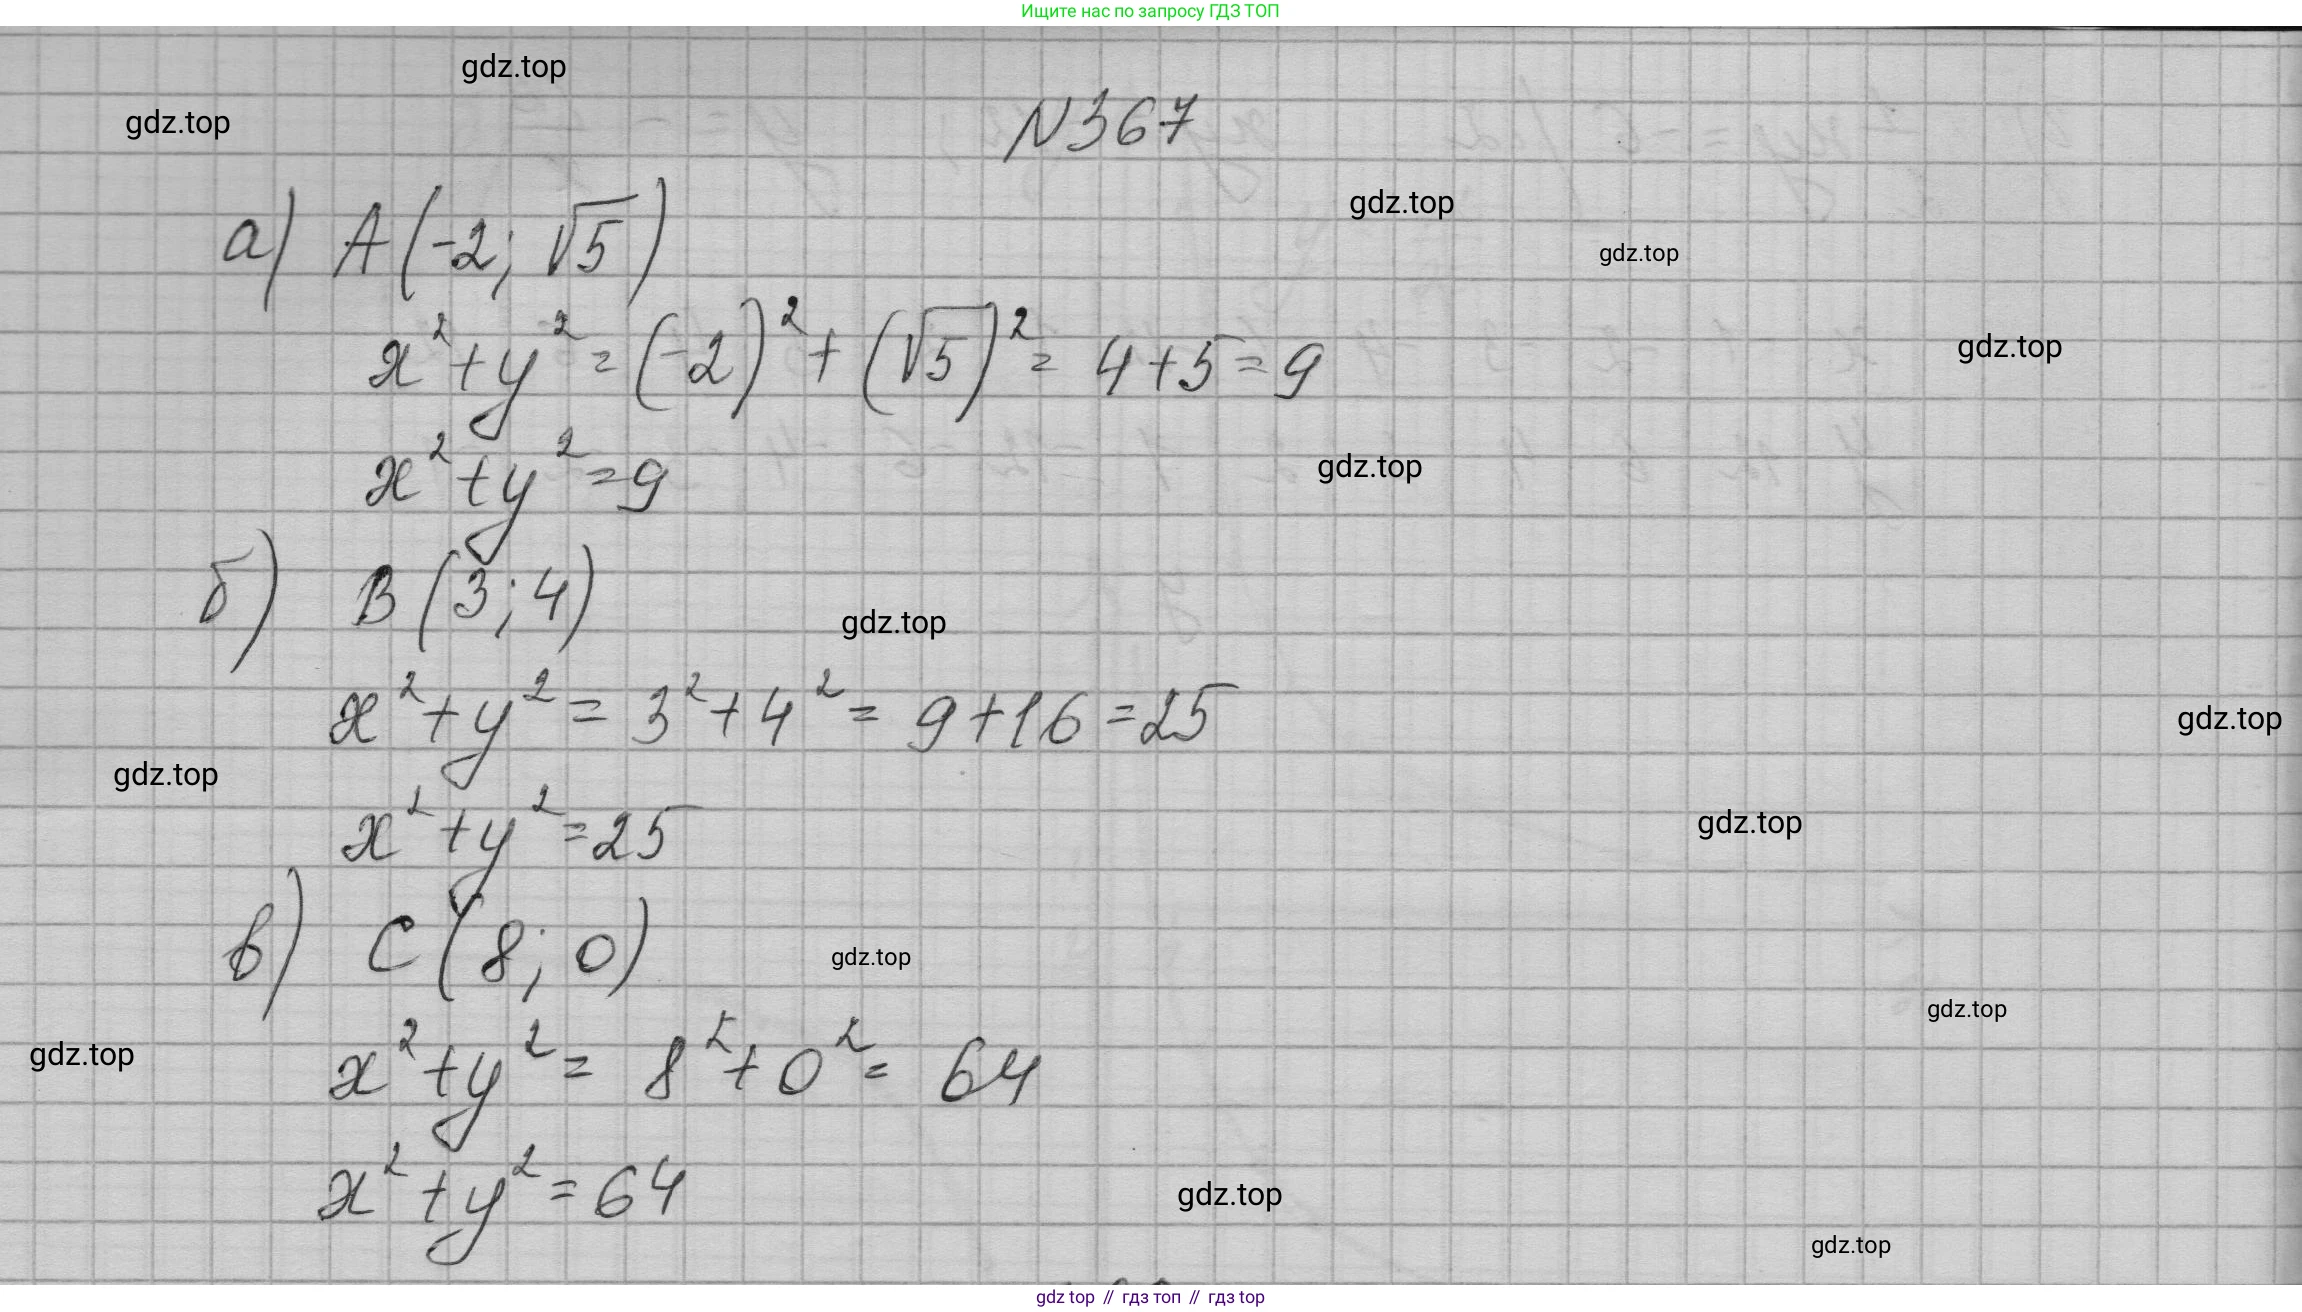 Ищите нас по запросу ГДЗ ТОП
gdz.top
gdz.top
N367
gdz.top
а) A(-2; √5)
gdz.top
x²+y²=(-2)²+(√5)²= 4+5=9
gdz.top
x²+y²=9
gdz.top
б) B(3;4)
gdz.top
x²+y²= 3²+4²= 9+16=25
gdz.top
gdz.top
x²+y²=25
gdz.top
в) C(8; 0)
gdz.top
gdz.top
x²+y²= 8²+0²= 64
gdz.top
x²+y²=64
gdz.top
gdz.top
gdz top // гдз топ // гдз top